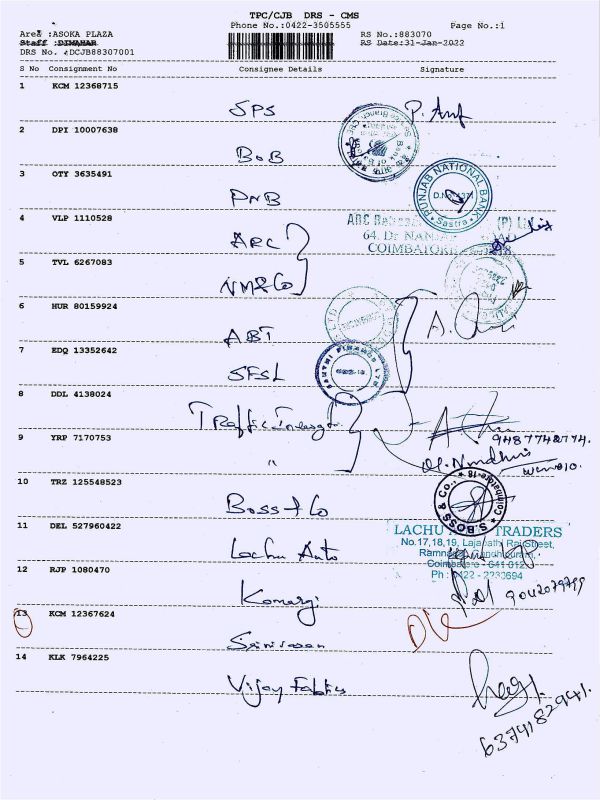 TPC/CJB DRS - CMS
Phone No.:0422-3505555 Page No.:1
Area :ASOKA PLAZA RS No.:883070
Staff :DIWAHAR RS Date:31-Jan-2022
DRS No. :DCJB88307001
S No Consignment No Consignee Details Signature
1 KCM 12368715
SPS
2 DPI 10007638
BoB
3 OTY 3635491
PNB
PUNJAB NATIONAL BANK
Sastra
4 VLP 1110528
ARC
ARC (P)
64, Dr NANJAPPA
COIMBATORE
5 TVL 6267083
NMR&Co
6 HUR 80159924
ABT
7 EDQ 13352642
SFSL
8 DDL 4138024
Traffic
9 YRP 7170753
"
9487748774.
10 TRZ 125548523
Boss & Co
S.BOSS & Co., Coimbatore-18
11 DEL 527960422
Lachu Auto
LACHU TRADERS
No.17,18,19, Lajapathi Rai Street,
Ramnagar, Gandhipuram,
Coimbatore - 641 012
Ph : 0422 - 2230694
12 RJP 1080470
Komargi
9042079799
13 KCM 12367624
Srinivasan
DL
14 KLK 7964225
Vijay Fabrics
6374182941.